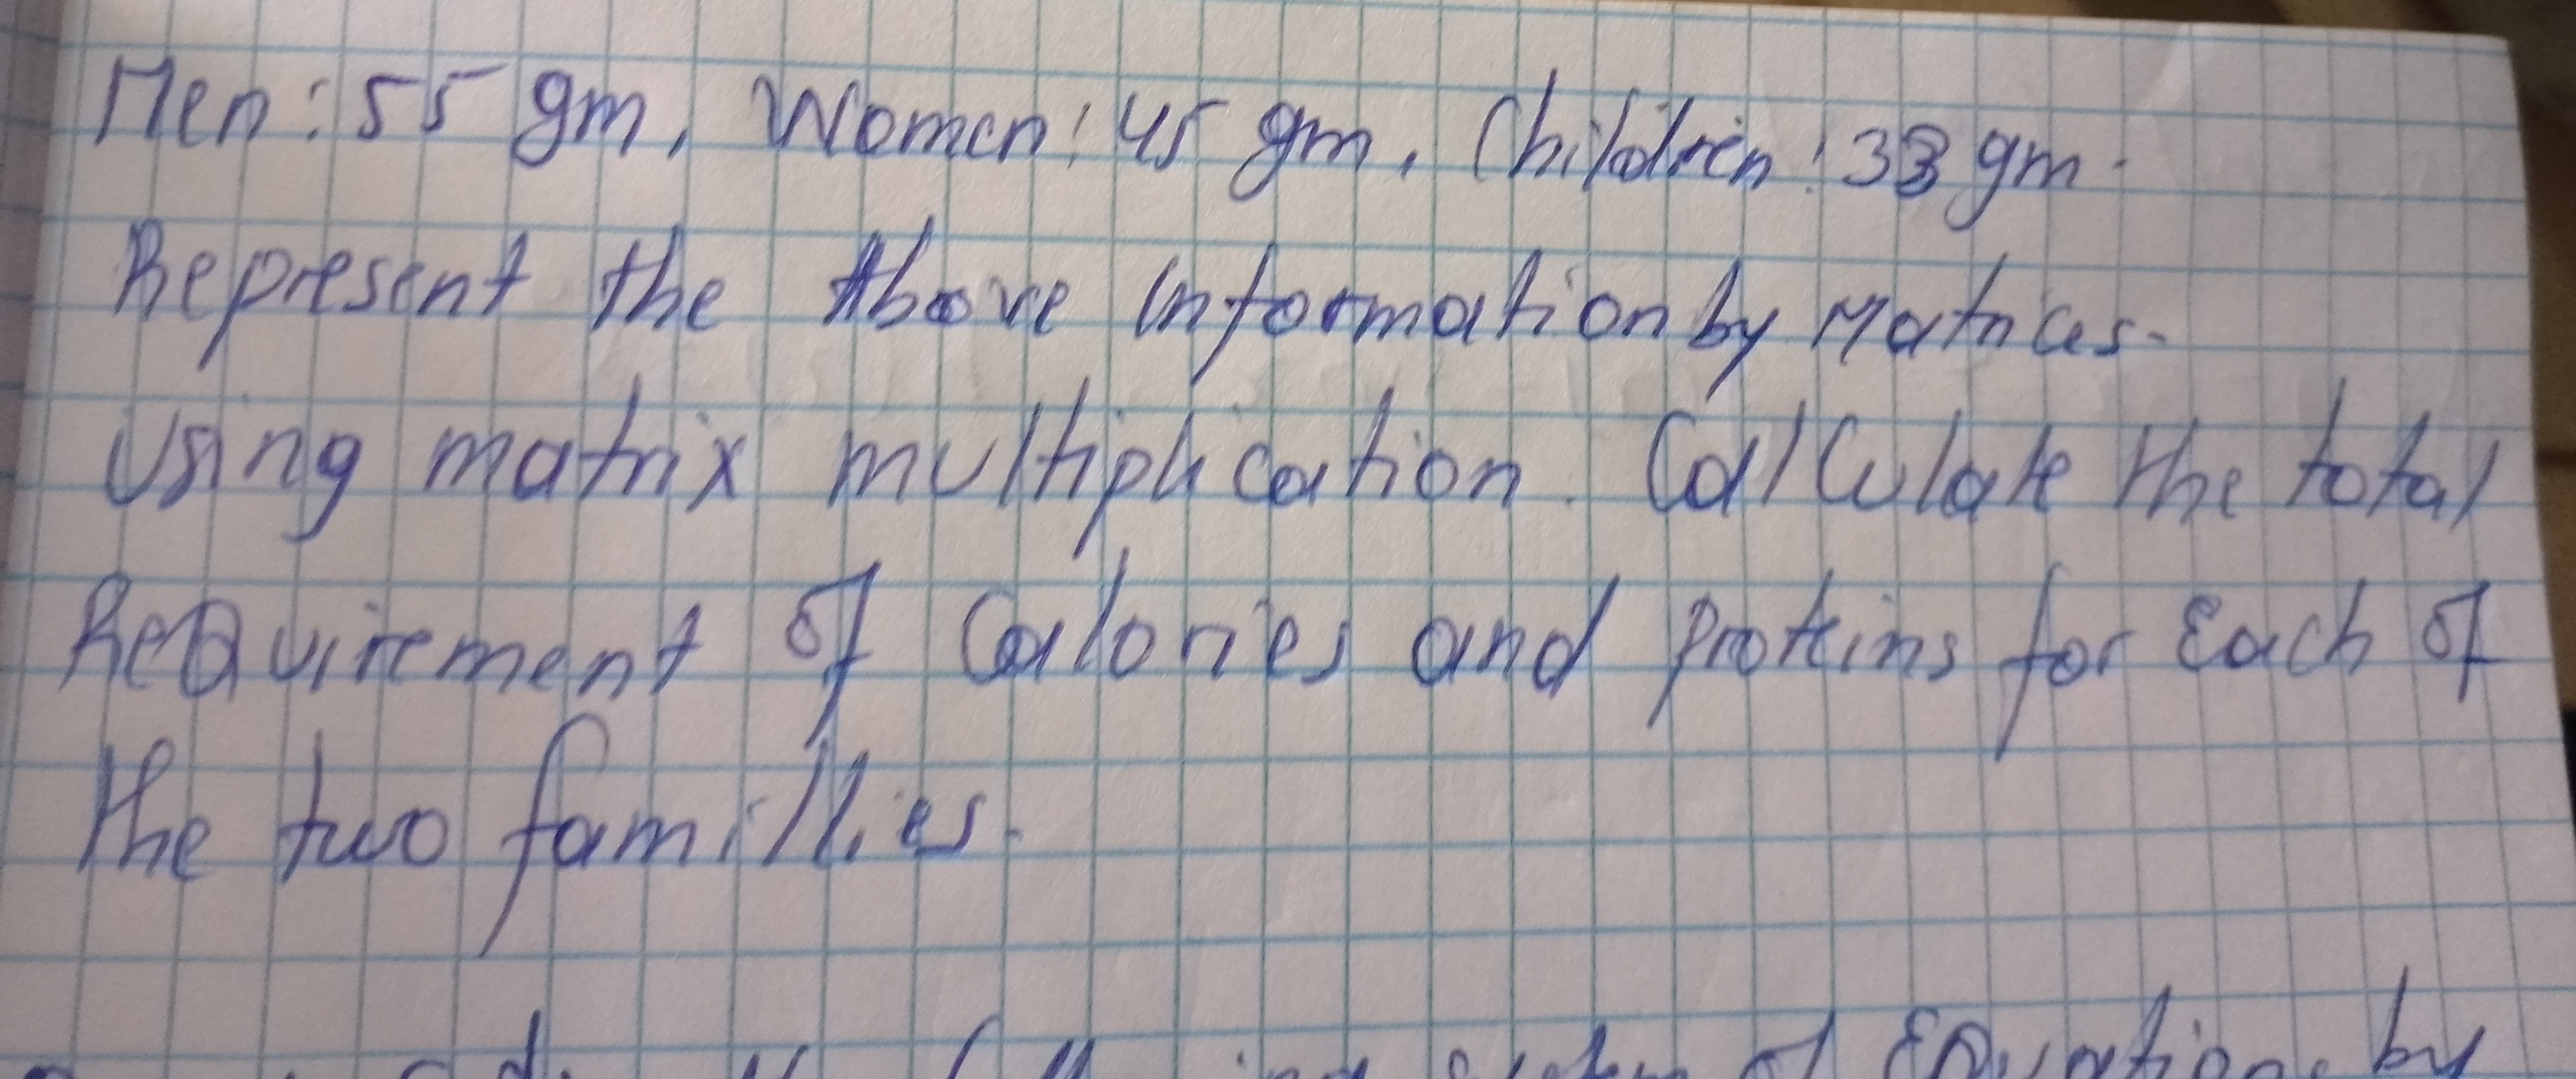 Men: 55 gm, Women: 45 gm, Children: 33 gm.
Represent the Above information by Matrices.
Using matrix multiplication. Calculate the total
Requirement of Calories and proteins for Each of
the two famillies.
system of Equations by